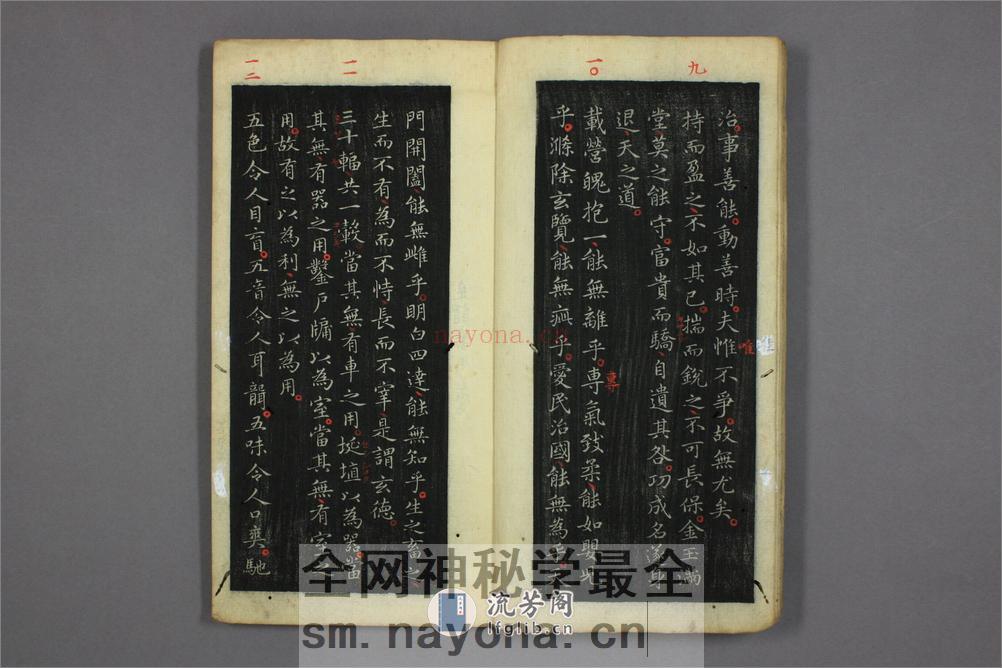 九
一〇
治事善能動善時夫惟不爭故無尤矣
唯
持而盈之不如其已揣而銳之不可長保金玉滿
堂莫之能守富貴而驕自遺其咎功成名遂身
退天之道
載營魄抱一能無離乎專氣致柔能如嬰兒
專
乎滌除玄覽能無疵乎愛民治國能無為乎天
一一
一二
門開闔能無雌乎明白四達能無知乎生之畜之
生而不有為而不恃長而不宰是謂玄德
三十輻共一轂當其無有車之用埏埴以為器當
其無有器之用鑿戶牖以為室當其無有室之
用故有之以為利無之以為用
五色令人目盲五音令人耳聾五味令人口爽馳
nayona.cn
全网神秘学最全
流芳阁
lfglib.cn
sm.nayona.cn